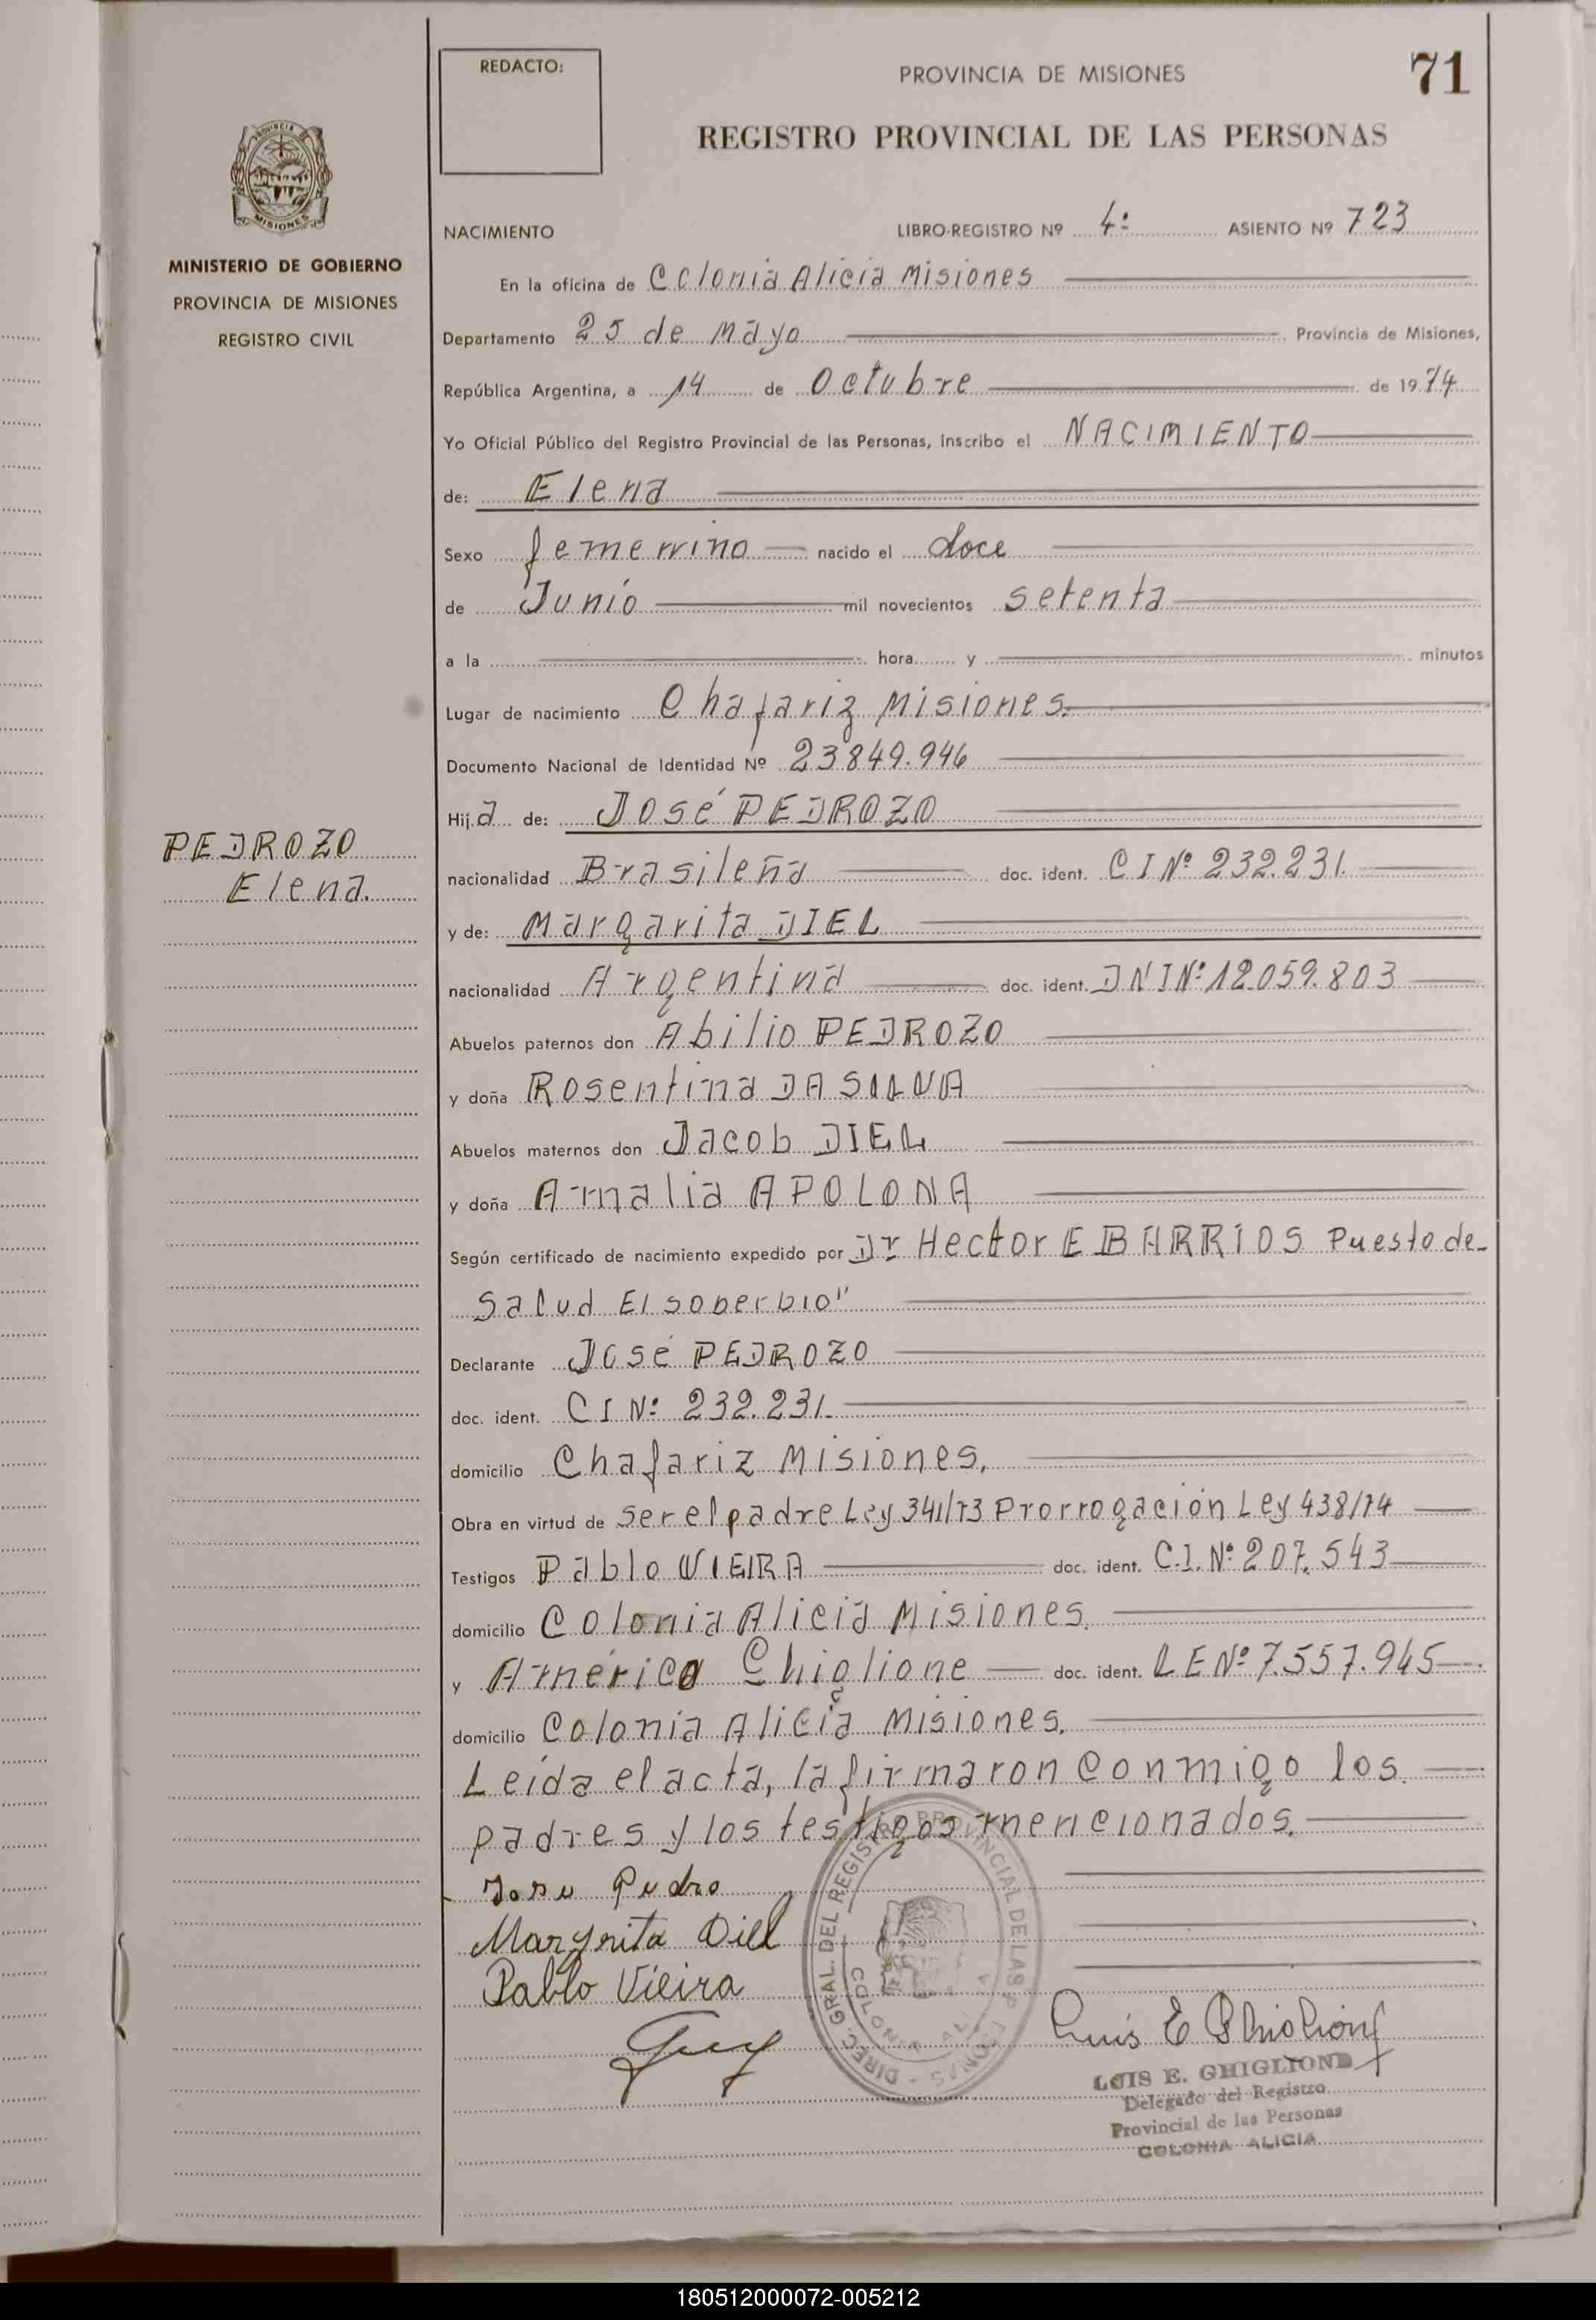 REDACTO:
PROVINCIA DE MISIONES
71
REGISTRO PROVINCIAL DE LAS PERSONAS
PROVINCIA DE
MISIONES
MINISTERIO DE GOBIERNO
PROVINCIA DE MISIONES
REGISTRO CIVIL
NACIMIENTO LIBRO-REGISTRO Nº 4º ASIENTO Nº 723
En la oficina de Colonia Alicia Misiones
Departamento 25 de Mayo Provincia de Misiones,
República Argentina, a 14 de Octubre de 1974
Yo Oficial Público del Registro Provincial de las Personas, inscribo el NACIMIENTO
de: Elena
Sexo femenino nacido el doce
de Junio mil novecientos setenta
a la hora y minutos
Lugar de nacimiento Chafariz Misiones.
Documento Nacional de Identidad Nº 23849.946
Hija de: José PEDROZO
PEDROZO
Elena.
nacionalidad Brasileña doc. ident. CI Nº 232.231.
y de: Margarita DIEL
nacionalidad Argentina doc. ident. DNI Nº 12.059.803
Abuelos paternos don Abilio PEDROZO
y doña Rosentina DA SILVA
Abuelos maternos don Jacob DIEL
y doña Amalia APOLONA
Según certificado de nacimiento expedido por Dr Hector E BARRIOS Puesto de-
Salud El soberbio"
Declarante José PEDROZO
doc. ident. CI Nº 232.231.
domicilio Chafariz Misiones.
Obra en virtud de ser el padre Ley 341/73 Prorrogación Ley 438/74
Testigos Pablo VIEIRA doc. ident. C.I. Nº 207.543
domicilio Colonia Alicia Misiones.
y Américo Ghiglione doc. ident. LE Nº 7.557.945
domicilio Colonia Alicia Misiones.
Leída el acta, la firmaron conmigo los
padres y los testigos mencionados.
Jose Pedro
Margarita Diel
Pablo Vieira
DIREC. GRAL. DEL REGISTRO PROVINCIAL DE LAS PERSONAS
COLONIA ALICIA
Luis E Ghiglione
LUIS E. GHIGLIONE
Delegado del Registro
Provincial de las Personas
COLONIA ALICIA
180512000072-005212